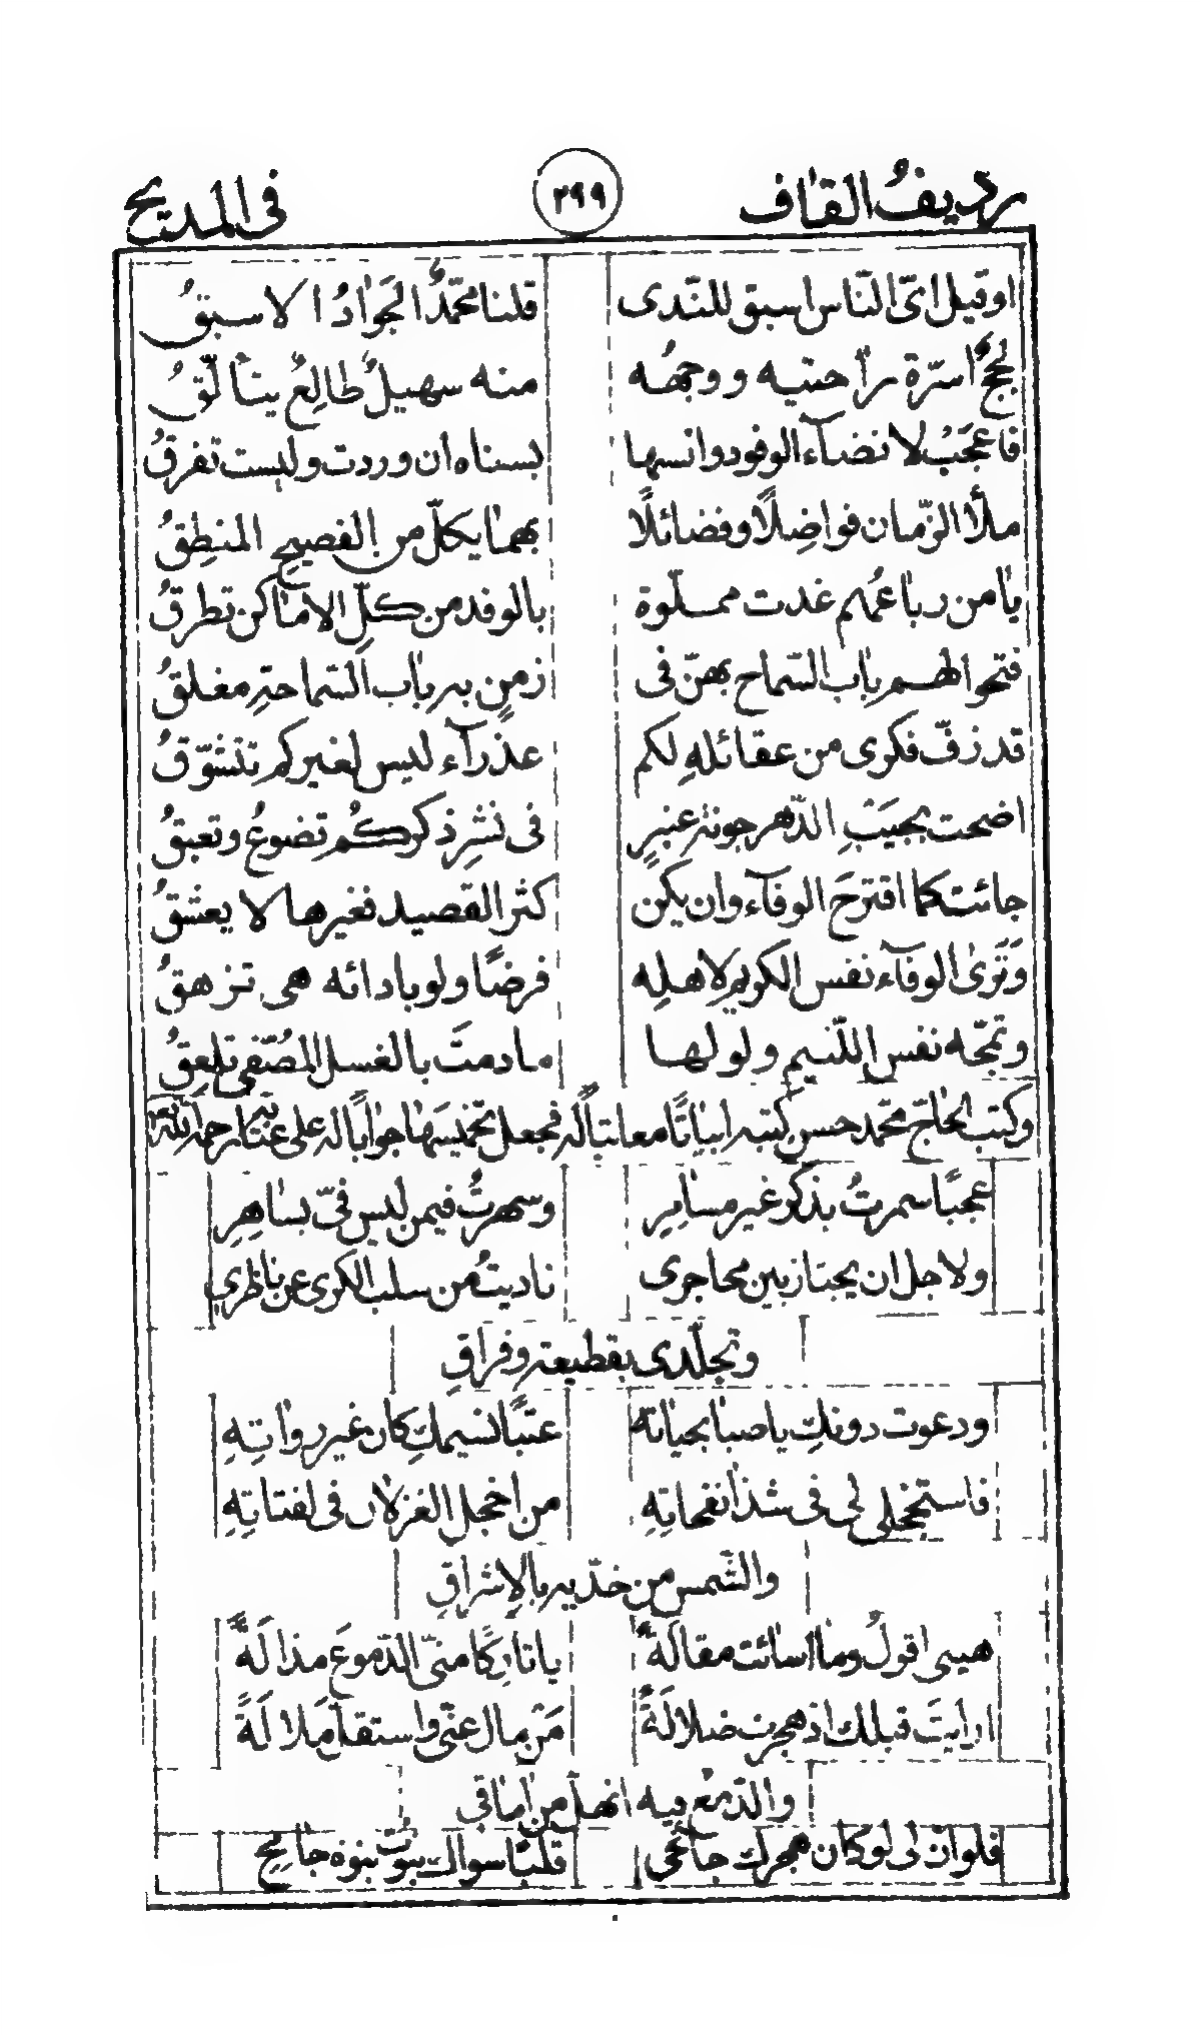 رديفُ القاف ٢٩٩ فى المديح
اوقيل اىّ النّاس اسبق للنّدى قلنا محمّدُ الجَوادُ الاسبقُ
لججٌ اسرّة راحتيه ووجهُه منه سهيلٌ طالِعٌ يتألّقُ
فاعجَبْ لانضآء الوفود وانسها بسناه ان وردت وليست تفرقُ
ملأ الزّمان فواضِلاً وفضائلًا بهما يكلّ من الفصيحِ المنطِقُ
يا من رباعُهم غدت مملّوة بالوفد من كلّ الاماكن تطرقُ
فتحوا لهم باب السّماح بهنّ فى زمنٍ به باب السّماحةِ مغلقُ
قد زفّ فكرى من عقائلهِ لكم عذرآء ليس لغيركم تتشوّقُ
اضحت بجَيبِ الدّهر جونة عنبرٍ فى نشرِ ذكركُم تضوعُ وتعبقُ
جائت كما اقترحَ الوفآء وان يكن كثر القصيد فغيرها لا يعشقُ
وَتَرى الوفآء نفس الكريم لاهلِه فرضًا ولو بادائه هى تزهقُ
وتمجّه نفس اللّئيم ولو لها مادمتَ بالغسل المُصّفى تلعِقُ
وكتب الحاجّ محمّد حسن كتبه ابياتًا معاتبًا له فجعل تخميسَها جوابًا له على عتابه رحمه الله
عجبًا سمرتُ بذكر غير مسامِرِ وسهرتُ فيمن ليس فىّ بساهِرِ
ولاجل ان يجتاز بين محاجرى ناديتُ من سلب الكرى عن ناظري
وتجلّدى بقطيعة وفراقِ
ودعوت دونكِ يا صبا بحياته عتبًا نسيمكِ كان غير رواتِهِ
فاستخجلى لى فى شذا نفحاتِهِ من اخجل الغزلان فى لفتاتِهِ
والشّمس من خدّيه بالاِشراقِ
هبى اقولُ وما اسائت مقالَةً يا تارِكًا منىّ الدّموعَ مذالَةً
ارايتَ قبلك اذ هجرت ضلالَةً مَنْ مال عنّى واستقلّ مَلالَةً
والدّمع فيه انهلّ من اماقى
فلو انّ لى لو كان هجرك جائحى قلبًا سواك نبوتُ نبوة جامِحِ